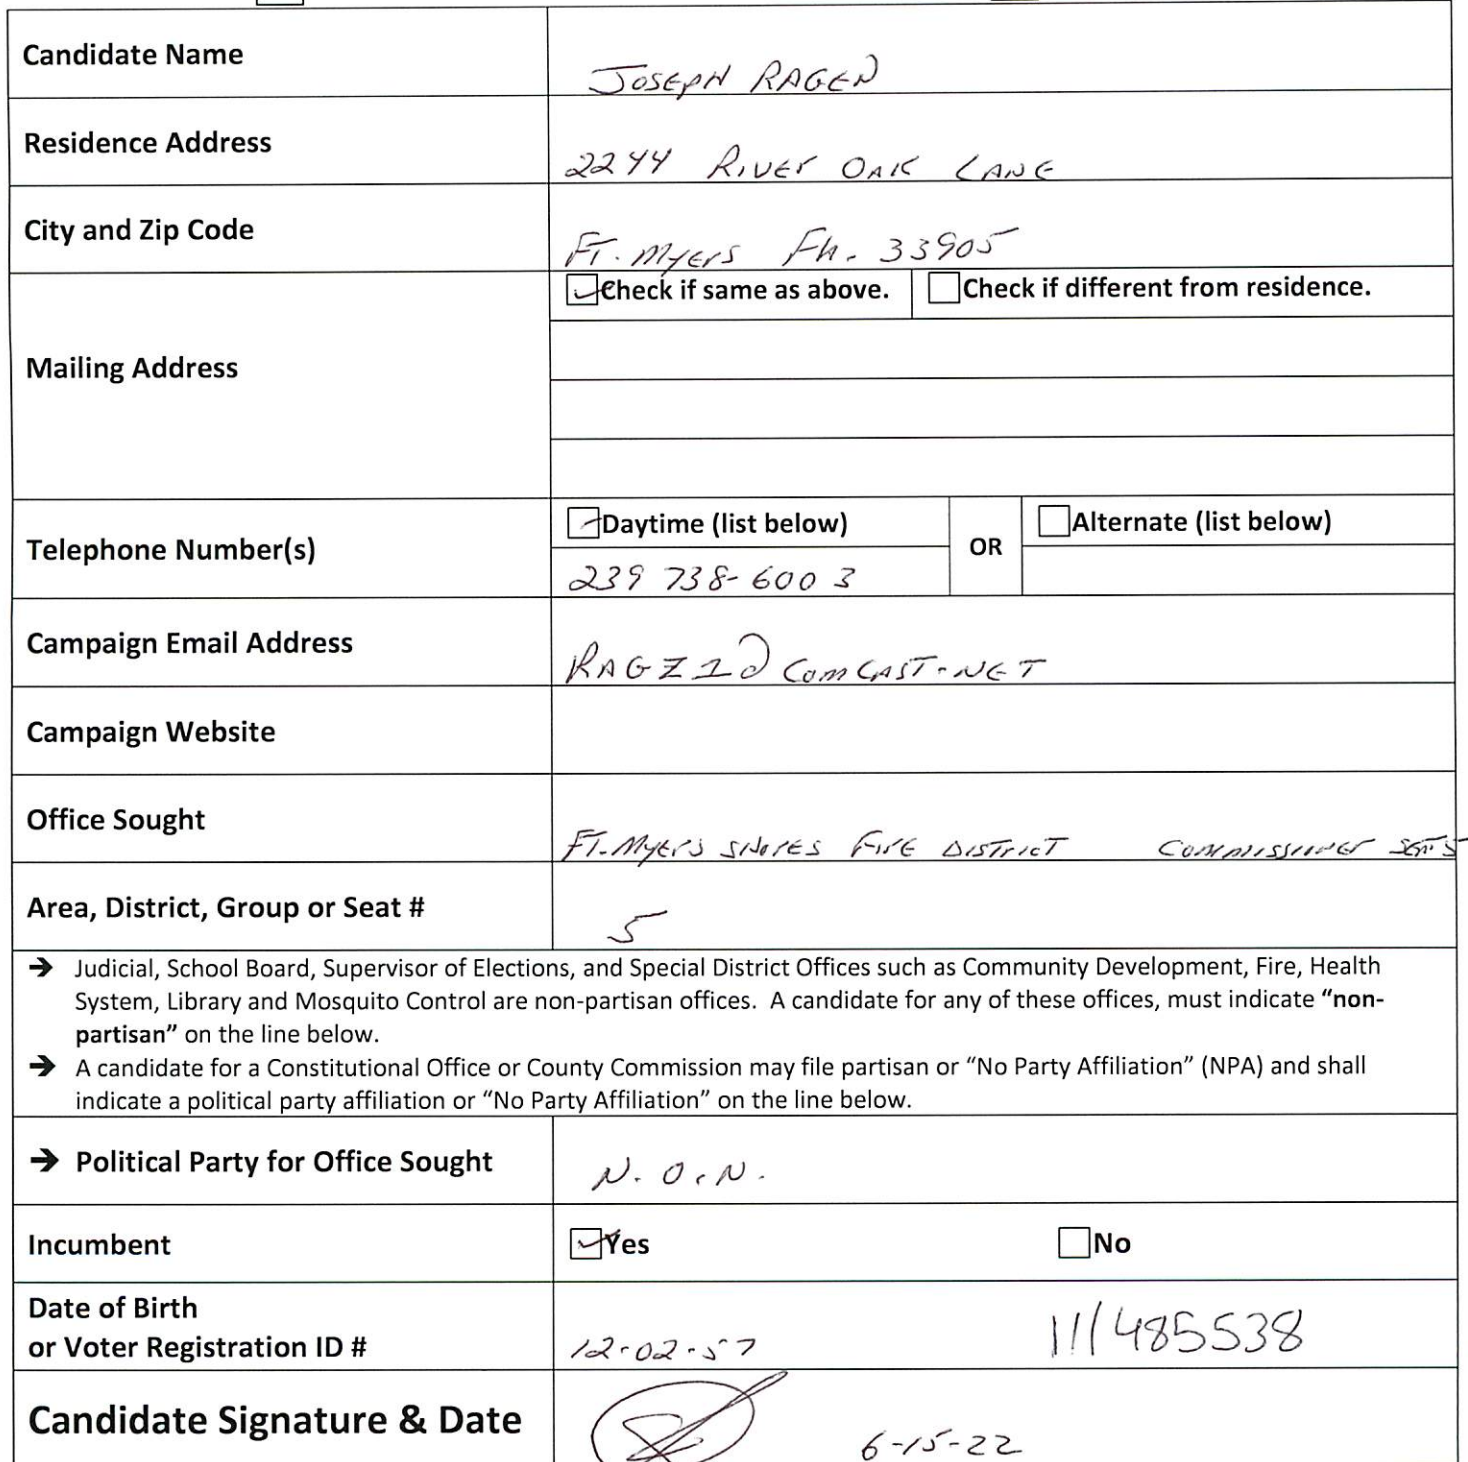 Candidate Name
JOSEPH RAGEN
Residence Address
2244 RIVER OAK LANE
City and Zip Code
FT. MYERS FL. 33905
Mailing Address
Check if same as above. Check if different from residence.
Telephone Number(s)
Daytime (list below) OR Alternate (list below)
239 738-6003
Campaign Email Address
RAGZ1@COMCAST.NET
Campaign Website
Office Sought
FT. MYERS SHORES FIRE DISTRICT COMMISSIONER SEAT 5
Area, District, Group or Seat #
5
➔ Judicial, School Board, Supervisor of Elections, and Special District Offices such as Community Development, Fire, Health
System, Library and Mosquito Control are non-partisan offices. A candidate for any of these offices, must indicate “non-
partisan” on the line below.
➔ A candidate for a Constitutional Office or County Commission may file partisan or “No Party Affiliation” (NPA) and shall
indicate a political party affiliation or “No Party Affiliation” on the line below.
➔ Political Party for Office Sought
N.O.N.
Incumbent
Yes No
Date of Birth
or Voter Registration ID #
12-02-57 111485538
Candidate Signature & Date
6-15-22